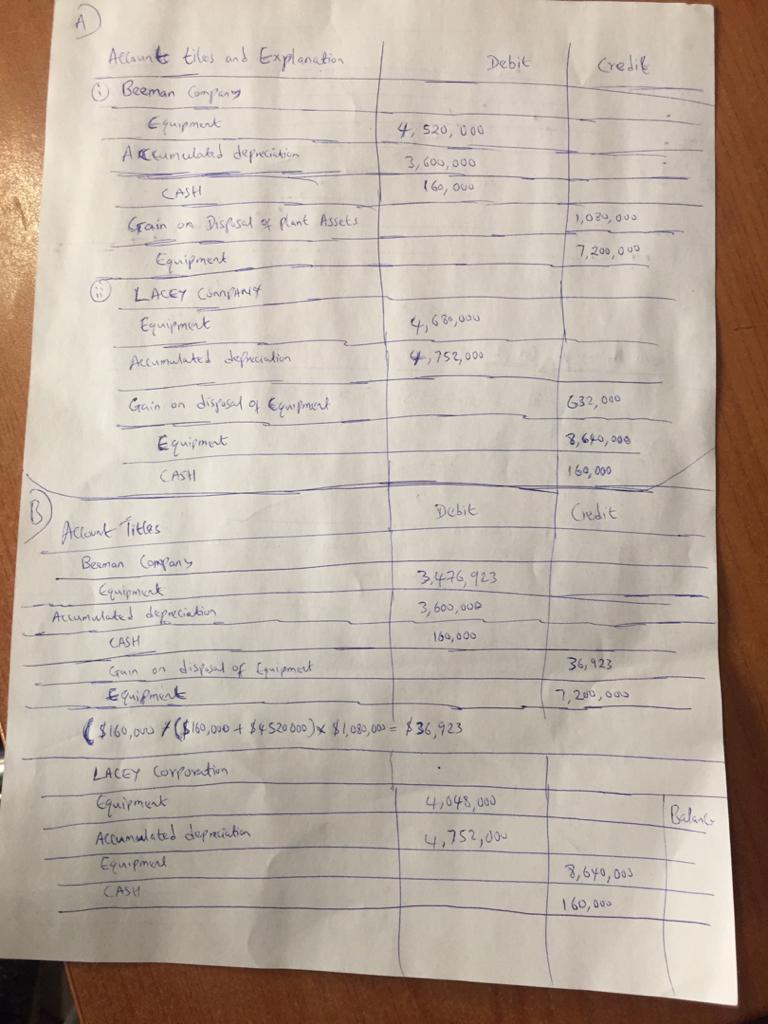 A
Account tiles and Explanation Debit Credit
i Beeman Company
Equipment 4,520,000
Accumulated depreciation 3,600,000
CASH 160,000
Gain on Disposal of plant Assets 1,080,000
Equipment 7,200,000
ii LACEY COMPANY
Equipment 4,680,000
Accumulated depreciation 4,752,000
Gain on disposal of Equipment 632,000
Equipment 8,640,000
CASH 160,000
B
Account Titles Debit Credit
Beeman Company
Equipment 3,476,923
Accumulated depreciation 3,600,000
CASH 160,000
Gain on disposal of Equipment 36,923
Equipment 7,200,000
($160,000 / ($160,000 + $4520000) x $1,080,000 = $36,923
LACEY Corporation
Equipment 4,048,000 Balance
Accumulated depreciation 4,752,000
Equipment 8,640,000
CASH 160,000